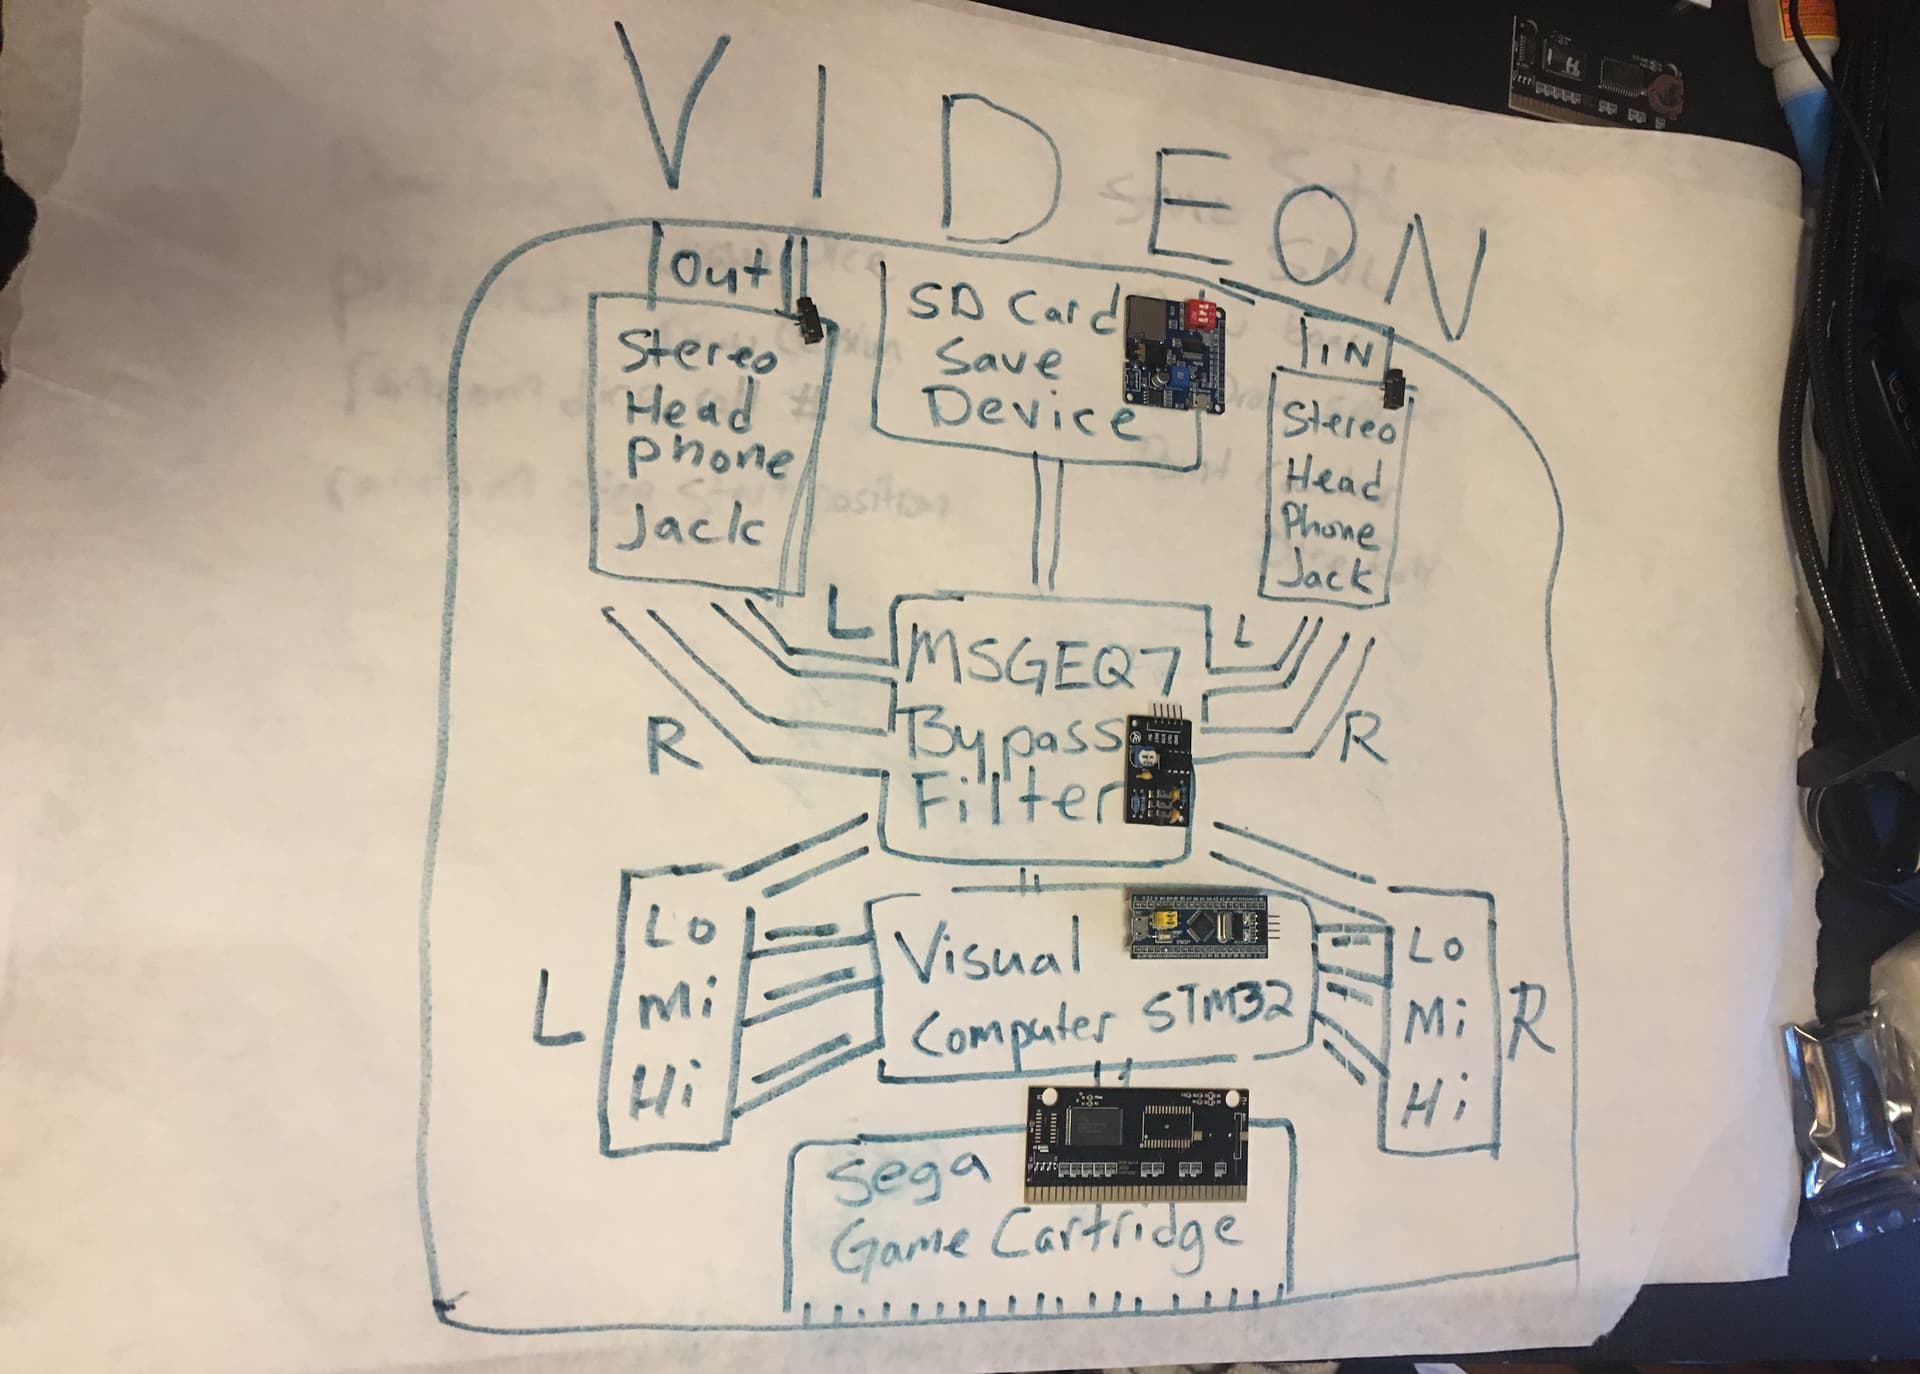 VIDEON
Out
Stereo
Head
phone
Jack
SD Card
Save
Device
IN
Stereo
Head
Phone
Jack
L
MSGEQ7
L
R
Bypass
R
Filter
L
Lo
Mi
Hi
Visual
Computer STM32
Lo
Mi
Hi
R
Sega
Game Cartridge